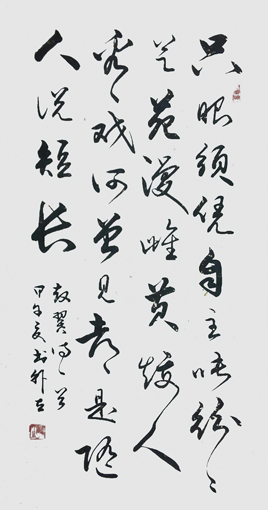 只眼須凭自主張紛〻
艺苑漫雌黄矮人
看戏何曾見都是随
人说短长
赵翼诗一首
甲午夏书